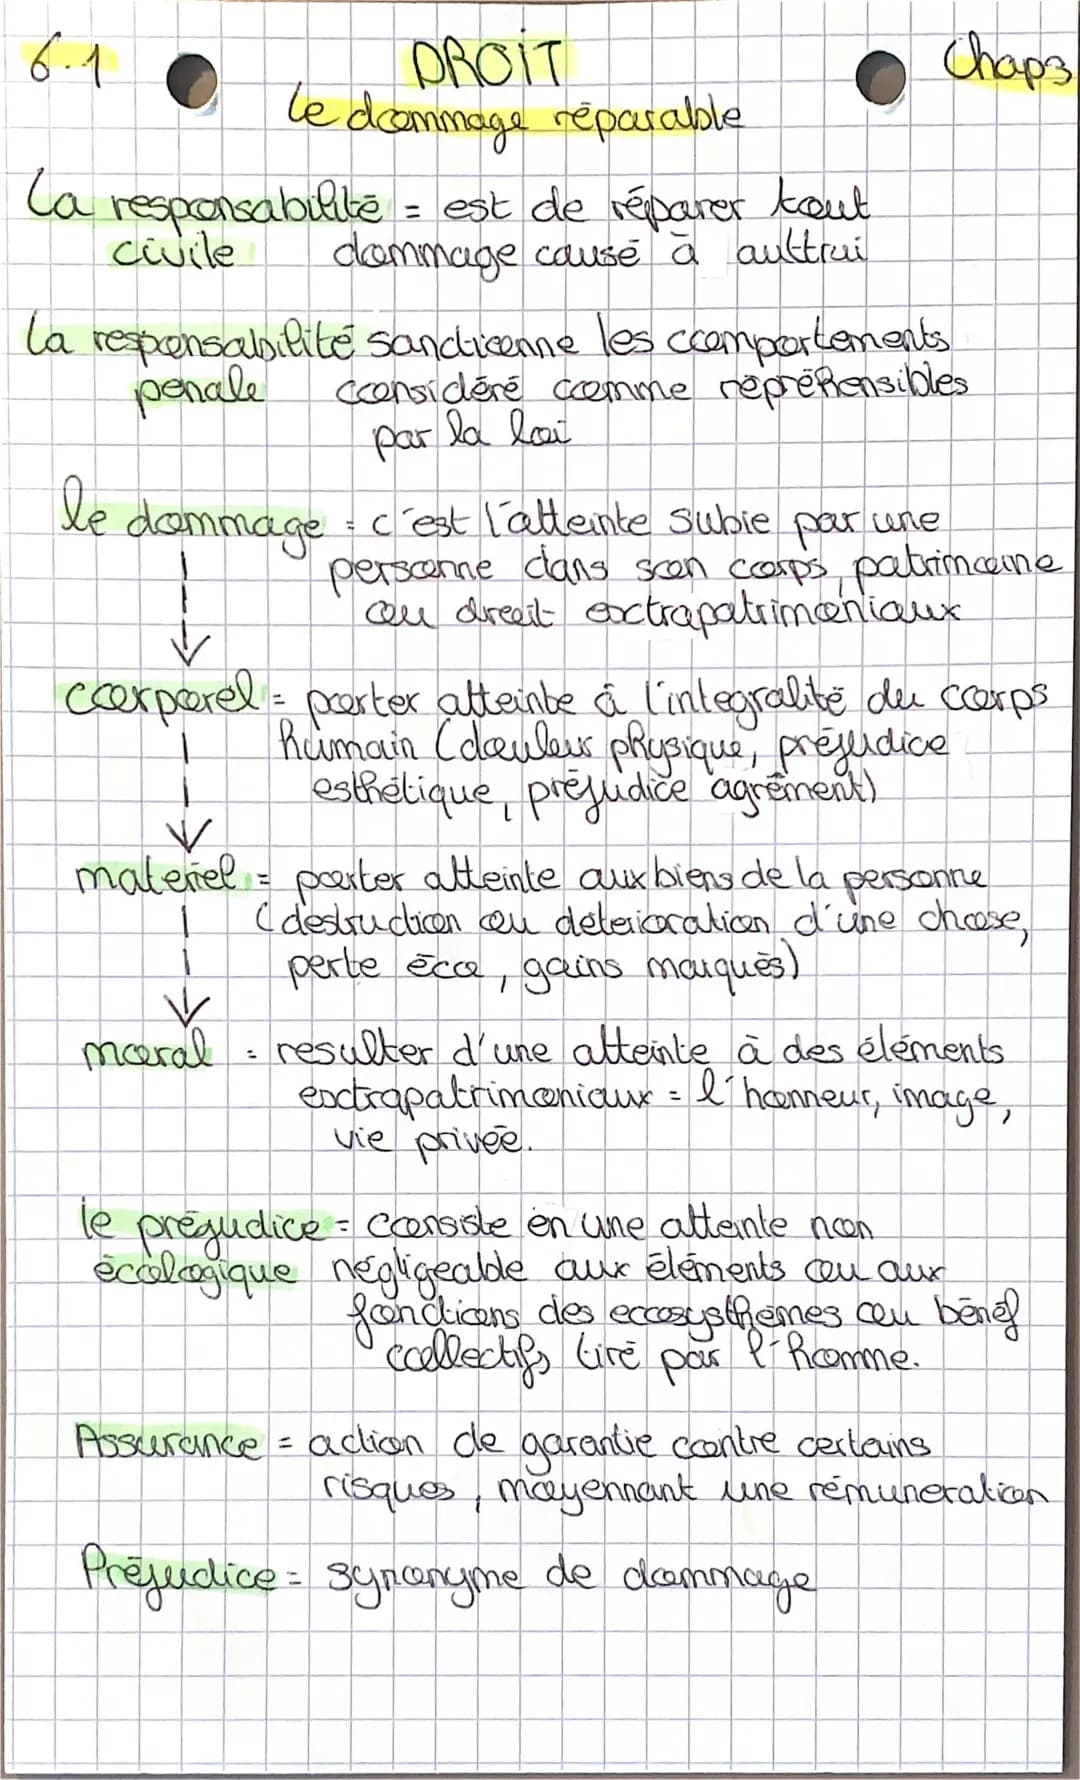 6.1 DROIT Chap3
le dommage réparable
La responsabilité = est de réparer tout
civile dommage causé à auttrui
La responsabilité sanctionne les comportements
penale considéré comme répréhensibles
par la loi
le dommage = c'est l'atteinte subie par une
personne dans son corps, patrimoine
ou droit extrapatrimoniaux
corporel = porter atteinte à l'integralité du corps
humain (douleur physique, préjudice
esthétique, préjudice agrément)
materiel = porter atteinte aux biens de la personne
(destruction ou deterioration d'une chose,
perte éco, gains manqués)
moral = resulter d'une atteinte à des éléments
extrapatrimoniaux = l'honneur, image,
vie privée.
le préjudice = consiste en une atteinte non
écologique négligeable aux éléments ou aux
fonctions des ecosysthèmes ou bénéf
collectifs tiré par l'homme.
Assurance = action de garantie contre certains
risques, moyennant une rémuneration
Préjudice = synonyme de dommage